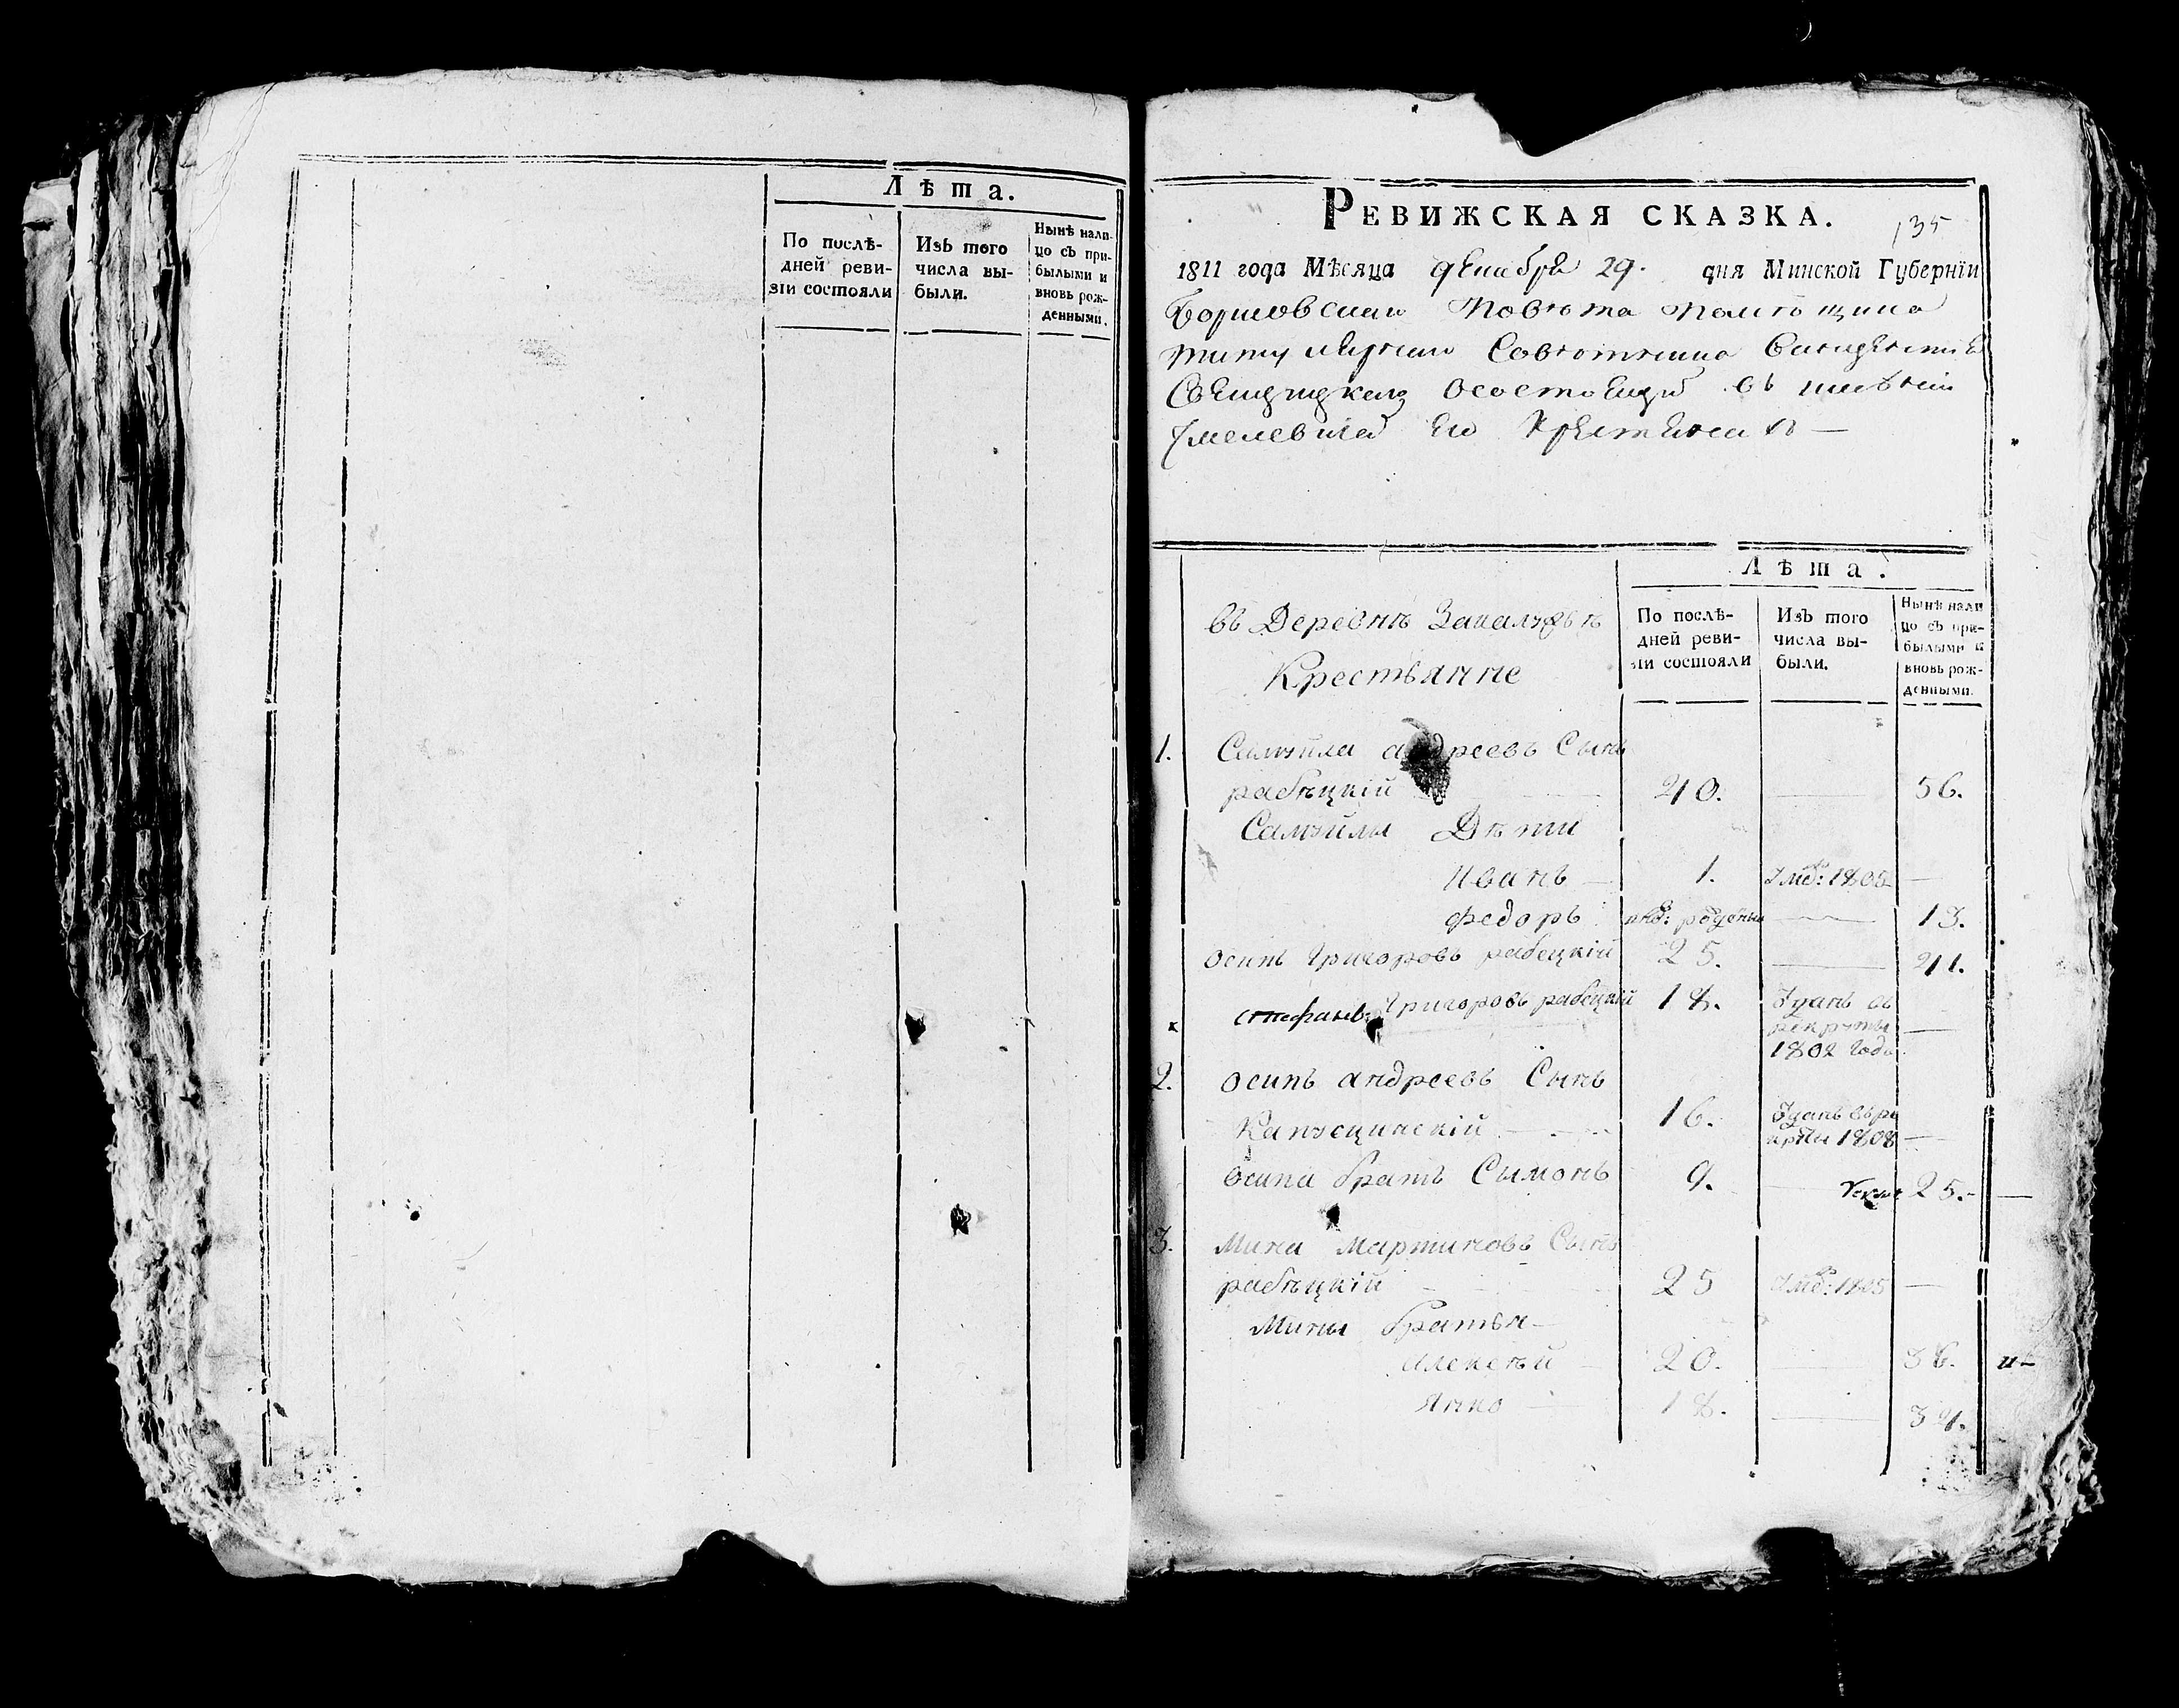 Лѣта.
По послѣ-
дней реви-
зіи состояли
Изъ того
числа вы-
были.
Нынѣ нали-
цо съ при-
былыми и
вновь рож-
денными.
Ревижская сказка.
135
1811 года Мѣсяца декабря 29. дня Минской Губерніи
Борисовскаго Повѣта Помѣщика
Титулярнаго Совѣтника
о состоящихъ въ имѣніи
его крестьянъ —
Лѣта.
въ Деревнѣ
Крестьянне
По послѣ-
дней реви-
зіи состояли
Изъ того
числа вы-
были.
Нынѣ нали
цо съ при-
былыми и
вновь рож-
денными.
1. Самуйла андреевъ Сынъ
рабѣцкій 40. — 56.
Самуйлы Дѣти
Иванъ — 1. Умѣ: 1805 —
федоръ — 13.
осипъ Григоровъ рабецкій 25. — 41.
стефанъ Григоровъ рабецкій 18. Зданъ въ
рекруты —
1802 года
2. осипъ андреевъ Сынъ
16. Зданъ въ ре
круты 1808 —
осипа братъ Сымонъ 9. — 25. —
3. Мина Мартиновъ Сынъ
рабѣцкій 25 Умѣ: 1805 —
Мины братья —
алексѣй 20. — 36.
Янко — 18. — 34.